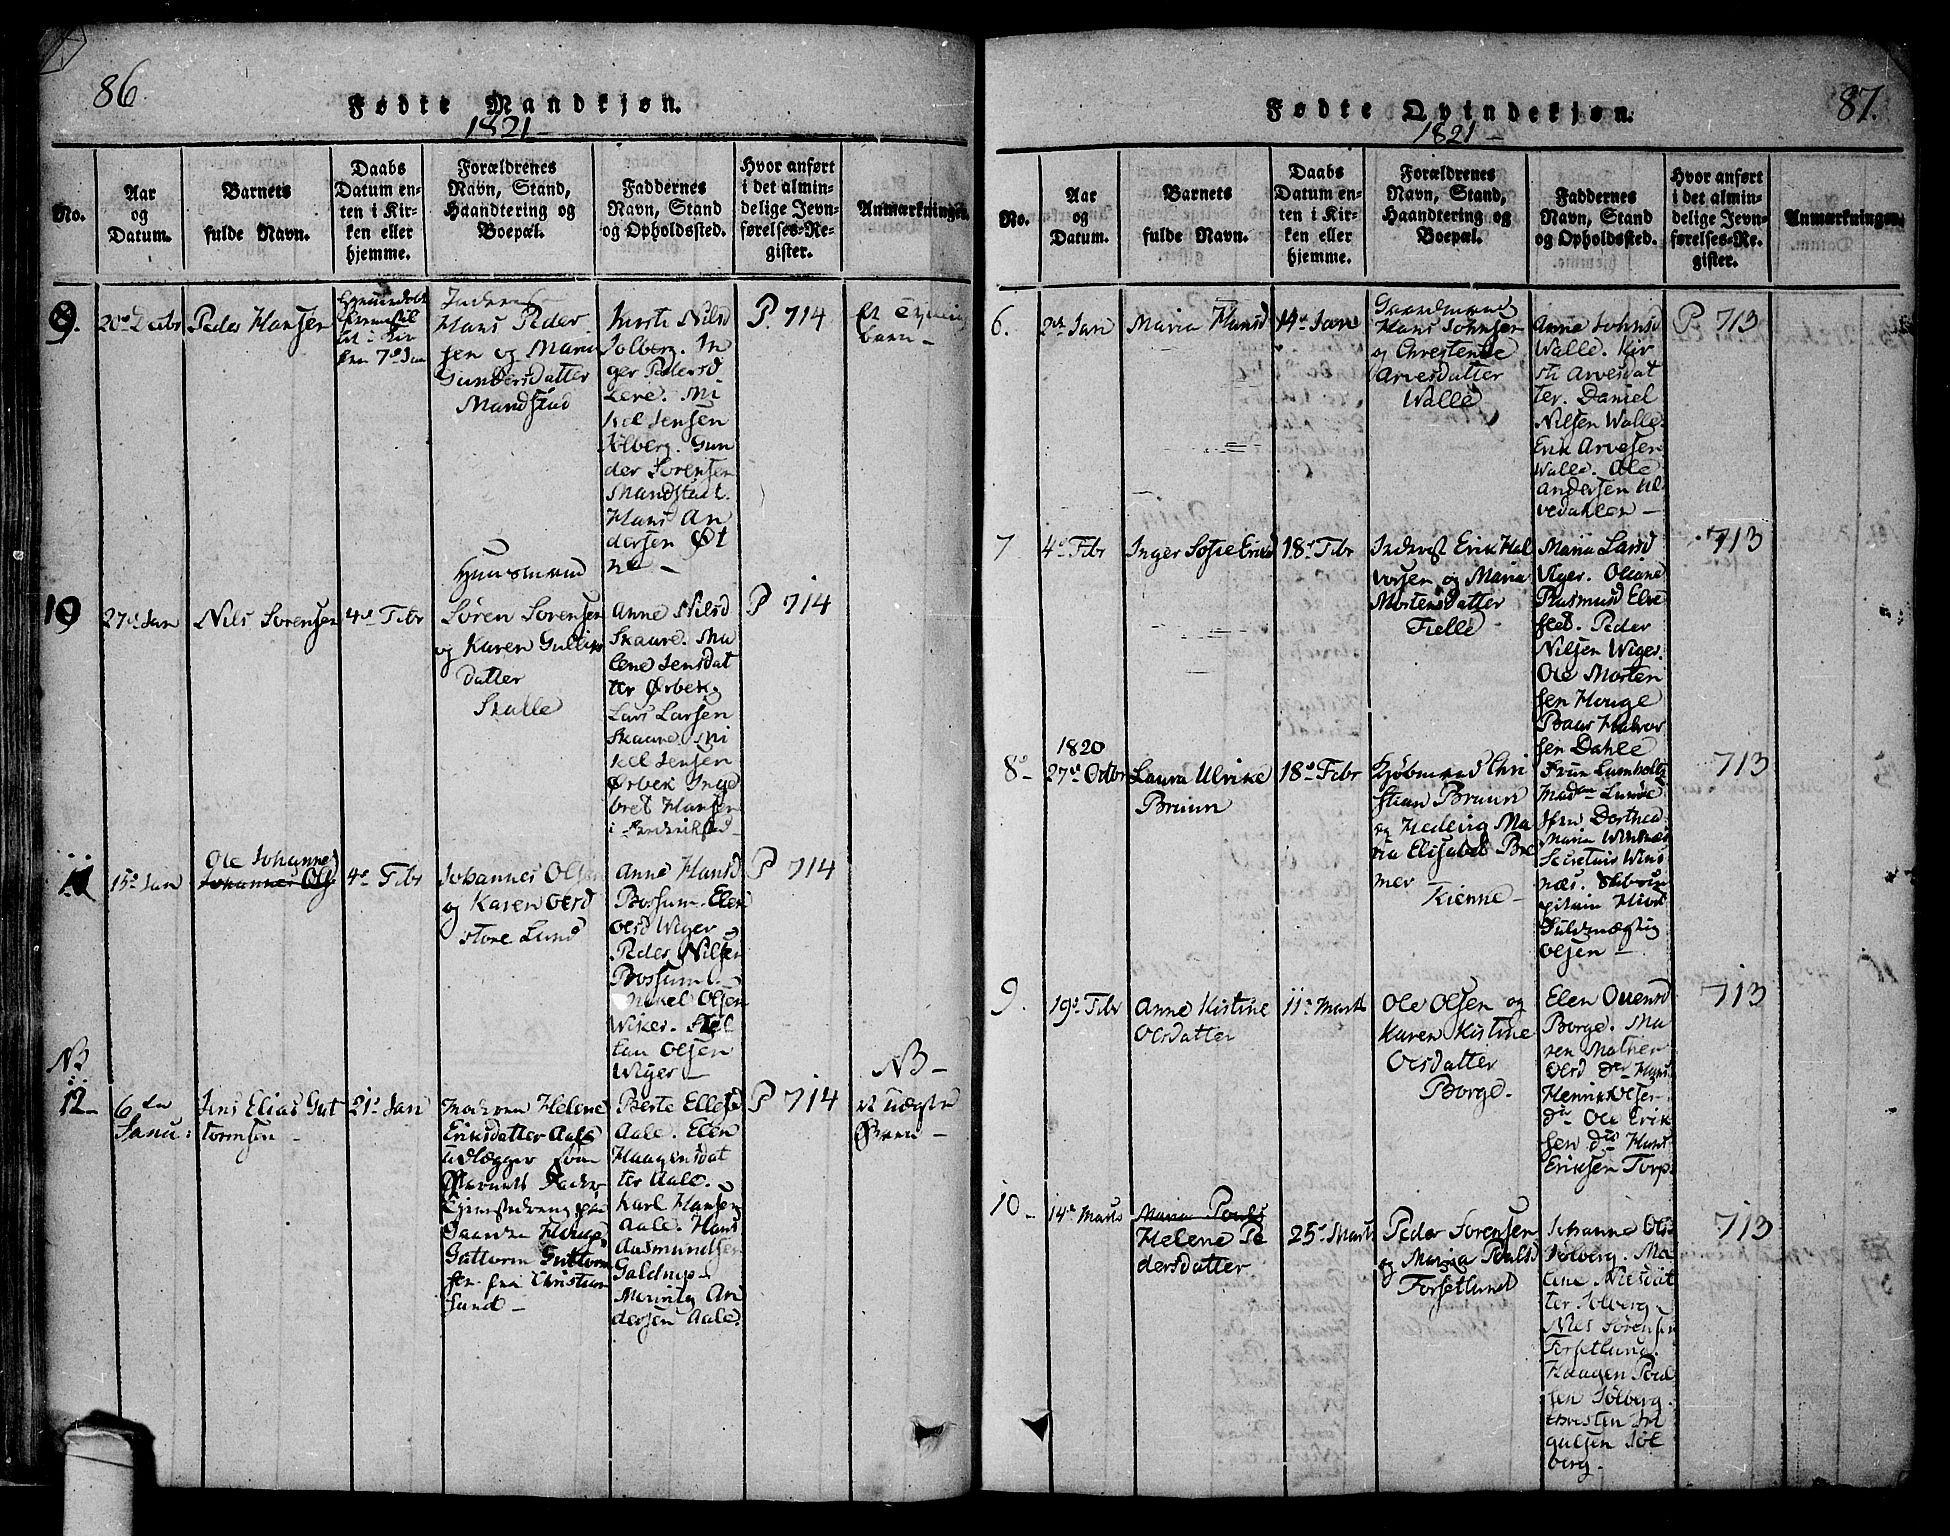 86.
Fødte Mandkjøn.
1821
No.
Aar
og
Datum.
Barnets
fulde Navn.
Daabs
Datum en-
ten i Kir-
ken eller
hjemme.
Forældrenes
Navn, Stand,
Haandtering og
Boepæl.
Faddernes
Navn, Stand
og Opholdssted.
Hvor anført
i det almin-
delige Jevn-
førelses-Re-
gister.
Anmærkninger.
9.
20de Decbr
Peder Hansen
Hjemmedøbt
7de Jan
Hans Peder
sen og Maria
Gundersdatter
Mandstad
Nilsd
Solberg. In
ger Pedersd
Lere. Mi
kel Jensen
Sølberg. Gun
der Sørensen
Mandstad.
Hans An
dersen Øt
ne
P. 714
barn
10
27de Jan
Nils Sørensen
4de Febr
Huusmand
Søren Sørensen
og Karen Gullies
datter
Skulle
Anne Nilsd
Skaare. Ma
lene Jensdat
ter Ørbek
Lars Larsen
Skaare. Mi
kel Jensen
Ørbek Inge
bret Hansen
i Frederikstad
P 714
11
15de Jan
Ole Johannes
Johannes Ols
4de Febr
Johannes Olsen
og Karen Olsd
store Lund
Anne Hansd
Bossum. Elen
Olsd Wiger
Peder Nilsen
Bossum.
Mikel Olsen
Wiker. Stef
fan Olsen
Wiger
P 714
NB
12
6te
Janu:
Jens Elias Gut
tormsen
21de Jan
Moderen Helene
Eriksdatter Aale
udlægger som
Barnets Fader
Guttorm Guttorm
sen fra Christian
sund
Berte Ellefsd
Aale. Elen
Haagensdat
ter Aale.
Karl Hansen
Aale. Hans
Aasmundsen
Galdrup
Mourity An
dersen Aale.
P 714
NB
et uægte
Barn
87.
Fødte Qvindekjøn.
1821
No.
Aar
og
Datum.
Barnets
fulde Navn.
Daabs
Datum en-
ten i Kir-
ken eller
hjemme.
Forældrenes
Navn, Stand,
Haandtering og
Boepæl.
Faddernes
Navn, Stand
og Opholdssted.
Hvor anført
i det almin-
delige Jevn-
førelses-Re-
gister.
Anmærkninger.
6.
2de Jan
Maria Hansd
14de Jan
Gaardmand
Hans Johnsen
og Christense
Arvesdatter
Walle
Anne Johnsd
Walle. Kir
sti Arvesdat
ter. Daniel
Nilsen Walle
Erik Arvesen
Walle. Ole
Andersen Ul
vedahlen
P 713
7
4de Febr
Inger Sofie Eriksd
18de Febr
Inderst Erik Hal
vorsen og Maria
Mortensdatter
Fielle
Maria Larsd
Viger. Oliane
Rasmusd Elve
flet. Peder
Nilsen Wiger.
Ole Morten
sen Houge
Baar Halvor
sen Dahle
713
8
1820
27de Octbr
Laura Ulrike
Bruun
18de Febr
Kjøbmand Chri
stian Bruun
og Hedevig Ma
ria Elisabet Bre
mer
Kienne
Frue Lumholtz
Madam Lunde
Jfru Dorthea
Maria Winsnæs
Secretair Wins
næs.
Fuldmægtig
Olsen
713
9.
19de Febr
Anne Kistine
Olsdatter
11te Marts
Ole Olsen og
Karen Kistine
Olsdatter
Borge.
Elen Ouensd
Borge. Ma
ren Mathea
Olsd do Hans
Henrik Olsen
do Ole Erik
sen do Hans
Eriksen Torp
713
10
14de Marts
Maria Pouls
Helene Pe
dersdatter
25de Marts
Peder Sørensen
og Maria Poulsd
Forsetlund
Johanne Olsd
Sølberg. Ma
lene Nielsdat
ter Sølberg
Niels Sørensen
Forsetlund.
Haagen Poul
sen Sølberg.
Christen
Søl
berg.
713